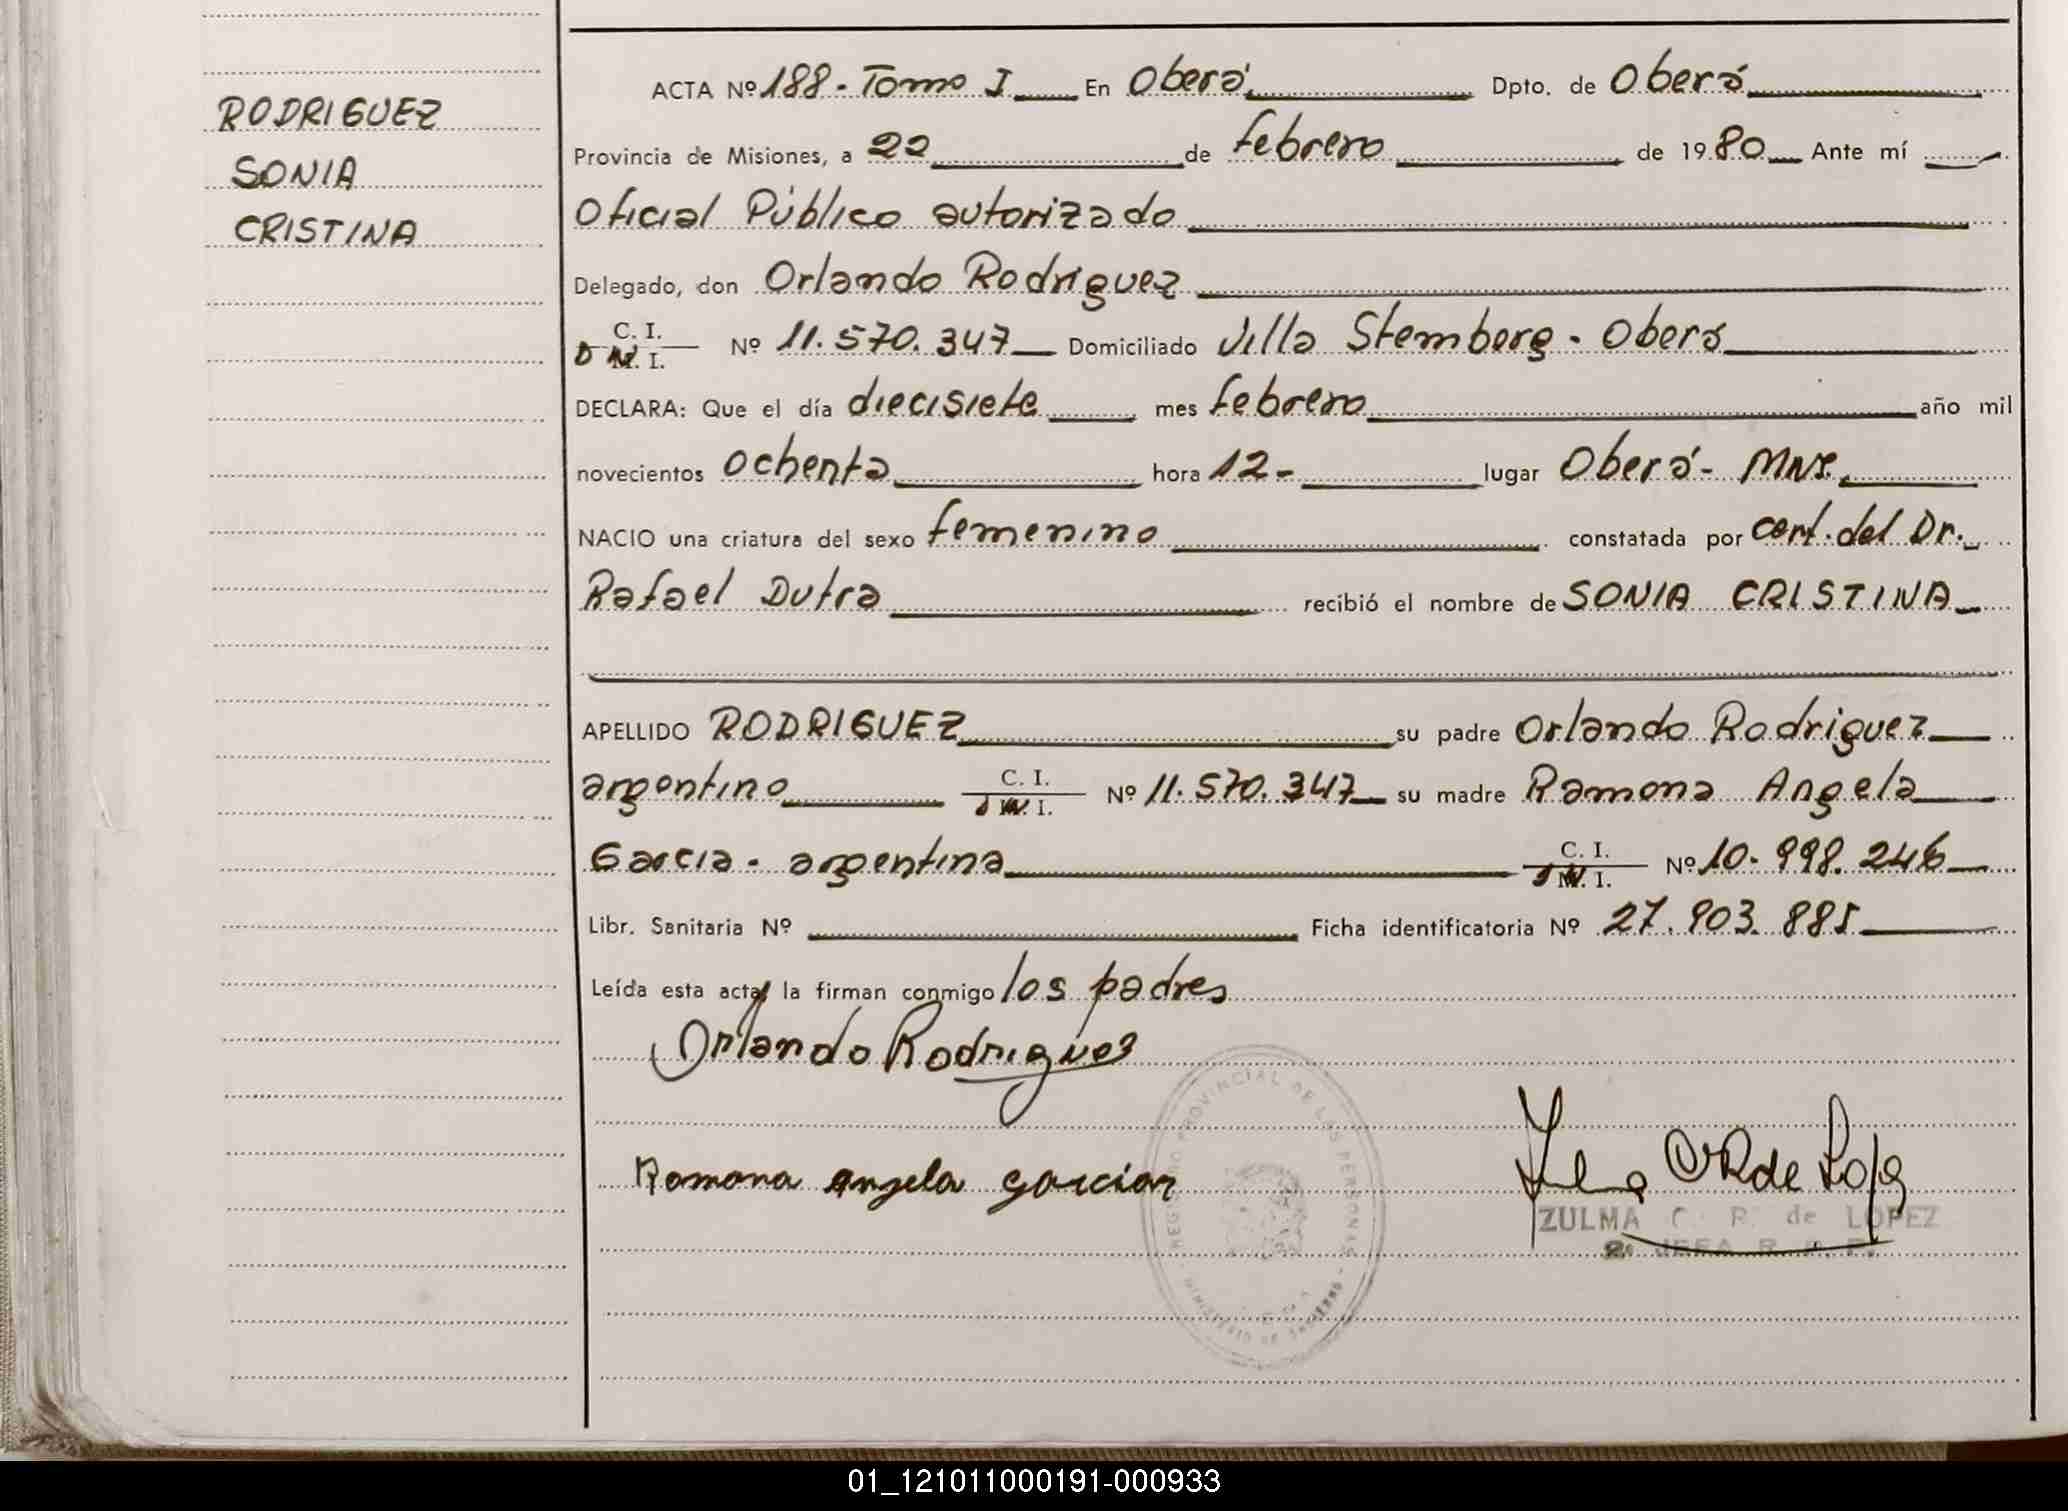 RODRIGUEZ
SONIA
CRISTINA
ACTA Nº 188 - Tomo I En Oberá Dpto. de Oberá
Provincia de Misiones, a 22 de febrero de 1980 Ante mí
Oficial Público autorizado
Delegado, don Orlando Rodríguez
C. I.
D N. I. Nº 11.570.347 Domiciliado Villa Stemberg - Oberá
DECLARA: Que el día diecisiete mes febrero año mil
novecientos ochenta hora 12- lugar Oberá - Mnes.
NACIO una criatura del sexo femenino constatada por cert. del Dr.
Rafael Dutra recibió el nombre de SONIA CRISTINA
APELLIDO RODRIGUEZ su padre Orlando Rodriguez
argentino C. I. Nº 11.570.347 su madre Ramona Angela
Garcia - argentina C. I. Nº 10.998.246
Libr. Sanitaria Nº Ficha identificatoria Nº 27.903.885
Leída esta acta, la firman conmigo los padres
Orlando Rodriguez
Ramona angela garcia
REGISTRO PROVINCIAL DE LAS PERSONAS
MINISTERIO DE GOBIERNO
ZULMA C. R. de LOPEZ
2º JEFA R. P. P.
01_121011000191-000933